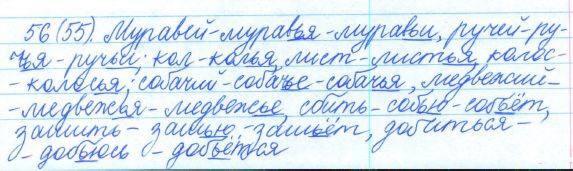 56(55). Муравей-муравья-муравьи, ручей-ру-
чья-ручьи; кол-колья, лист-листья, колос-
-колосья; собачий-собачье-собачья, медвежий-
-медвежья-медвежье, сбить-собью-собьёт,
зашить-зашью-зашьёт, добиться-
-добьюсь-добьётся